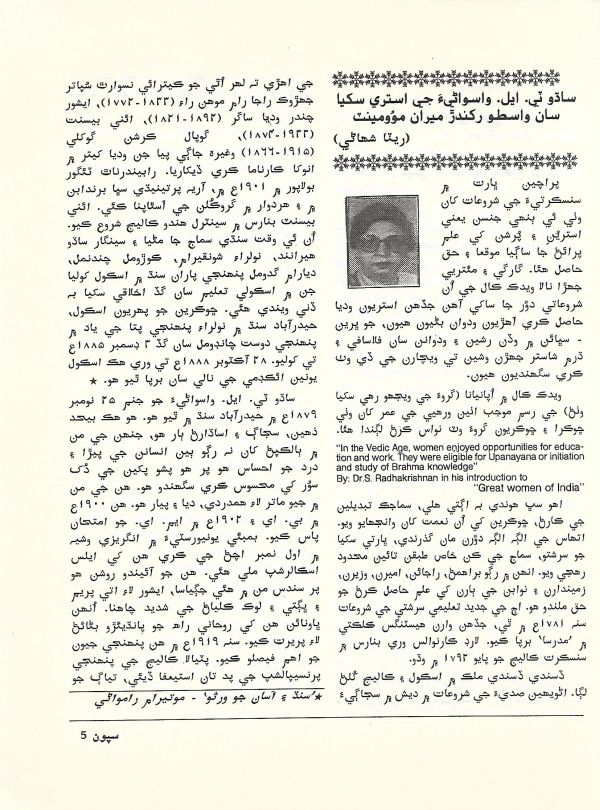 ساڌو ٽي. ايل. واسواڻيءَ جي استري سکيا
سان واسطو رکندڙ ميران موومينٽ
(ريٽا شهاڻي)
پراچين ڀارت ۾
سنسڪرتيءَ جي شروعات کان
وٺي ئي ٻنهي جنسن يعني
استريُن ۽ پُرشن کي علم
پرائڻ جا ساڳيا موقعا ۽ حق
حاصل هئا. گارگي ۽ مئتريي
جهڙا نالا ويدڪ ڪال جي اُن
شروعاتي دؤر جا ساکي آهن جڏهن استريون وديا
حاصل ڪري آهڙيون ودوان بڻيون هيون، جو ڀرين
- سڀائن ۾ وڏن رشين ۽ ودوانن سان فلاسافي ۽
ڌرم شاستر جهڙن وشين تي ويچارن جي ڏي وٺ
ڪري سگهنديون هيون.
ويدڪ ڪال ۾ اُپانيانا (گروءَ جي ويجهو رهي سکيا
وٺڻ) جي رسم موجب اٺين ورهيي جي عمر کان وٺي
ڇوڪرا ۽ ڇوڪريون گروءَ وٽ نواس ڪرڻ لڳندا هئا.
"In the Vedic Age, women enjoyed opportunities for educa-
tion and work. They were eligible for Upanayana or initiation
and study of Brahma knowledge"
By: Dr.S. Radhakrishnan in his introduction to
"Great women of India"
اهو سڀ هوندي به اڳتي هلي، سماجڪ تبديلين
جي ڪارڻ، ڇوڪرين کي اُن نعمت کان وانجهايو ويو.
اتهاس جي الڳ الڳ دؤرن مان گذرندي، ڀارتي سکيا
جو سرشتو، سماج جي ڪن خاص طبقن تائين محدود
رهجي ويو. انهن ۾ رڳو براهمڻ، راجائن، اميرن، وزيرن،
زميندارن ۽ نوابن جي ٻارن کي علم حاصل ڪرڻ جو
حق ملندو هو. اڄ جي جديد تعليمي سرشتي جي شروعات
سنه ١٧٨١ع ۾ ٿي، جڏهن وارن هيسٽنگس ڪلڪتي
۾ 'مدرسا' برپا ڪيو. لارڊ ڪارنوالس وري بنارس ۾
سنسڪرت ڪاليج جو پايو ١٧٩٢ ۾ وڌو.
ڏسندي ڏسندي ملڪ ۾ اسڪول ۽ ڪاليج کُلڻ
لڳا. اڻويهين صديءَ جي شروعات ۾ ديش ۾ سجاڳيءَ
جي اهڙي ته لهر آئي جو ڪيترائي نسوارٿ شڀاتر
جهڙوڪ راجا رام موهن راءِ (١٨٣٣-١٧٧٢)، ايشور
چندر وديا ساگر (١٨٩٢-١٨٢١)، ائني بيسنٽ
(١٩٣٣-١٨٧٤)، گوپال ڪرشن گوکلي
(١٩١٥-١٨٦٦) وغيره جاڳي پيا جن وديا کيتر ۾
انوکا ڪارناما ڪري ڏيکاريا. رابيندرناٿ ٽئگور
بولاپور ۾ ١٩٠١ع ۾، آريه پرتينيڌي سڀا برندابن
۾ ۽ هردوار ۾ گروڪُلن جي اُسٿاپنا ڪئي. ائني
بيسنٽ بنارس ۾ سينٽرل هندو ڪاليج شروع ڪيو.
اُن ئي وقت سنڌي سماج جا مڻيا ۽ سينگار ساڌو
هيرانند، نولراءِ شوقيرام، ڪوڙومل چندنمل،
ديارام گدومل پنهنجي پاران سنڌ ۾ اسڪول کوليا
جن ۾ اسڪولي تعليم سان گڏ اخلاقي سکيا به
ڏني ويندي هئي. ڇوڪرين جو پهريون اسڪول،
حيدرآباد سنڌ ۾ نولراءِ پنهنجي پتا جي ياد ۾
پنهنجي دوست چاندومل سان گڏ ٣ ڊسمبر ١٨٨٥ع
تي کوليو. ٢٨ آڪٽوبر ١٨٨٨ع تي وري هڪ اسڪول
يونين اڪئڊمي جي نالي سان برپا ٿيو هو. ★
ساڌو ٽي. ايل. واسواڻيءَ جو جنم ٢٥ نومبر
١٨٧٩ع ۾ حيدرآباد سنڌ ۾ ٿيو هو. هو هڪ بيحد
ذهين، سڄاڳ ۽ اساڌارڻ ٻار هو، جنهن جي من
۾ بالڪپڻ کان نه رڳو ٻين انسانن جي پيڙا ۽
درد جو احساس هو پر هو پشو پکين جي ڏک
سؤر کي محسوس ڪري سگهندو هو. هن جي من
۾ جيو ماتر لاءِ همدردي، ديا ۽ پيار هو. هن ١٩٠٠ع
۾ بي. اي ۽ ١٩٠٢ع ۾ ايم. اي. جو امتحان
پاس ڪيو. بمبئي يونيورسٽيءَ ۾ انگريزي وشيه
۾ اول نمبر اچڻ جي ڪري هن کي ايلس
اسڪالرشپ ملي هئي. هن جو آئيندو روشن هو
پر سندس من ۾ هئي جگياسا، ايشور لاءِ اتي پريم
۽ ڀڳتي ۽ لوڪ ڪلياڻ جي شديد چاهنا. اُنهن
ڀاونائن هن کي روحاني راھ جو پانڌيئڙو بڻائڻ
لاءِ پريرت ڪيو. سنه ١٩١٩ع ۾ هن پنهنجي جيون
جو اهم فيصلو ڪيو. پٽيالا ڪاليج جي پنهنجي
پرنسيپالشپ جي پد تان استيعفا ڏيئي، تياڳ جو
★ 'سنڌ ۽ اُسان جو ورثو' - موتيرام رامواڻي
سپون 5